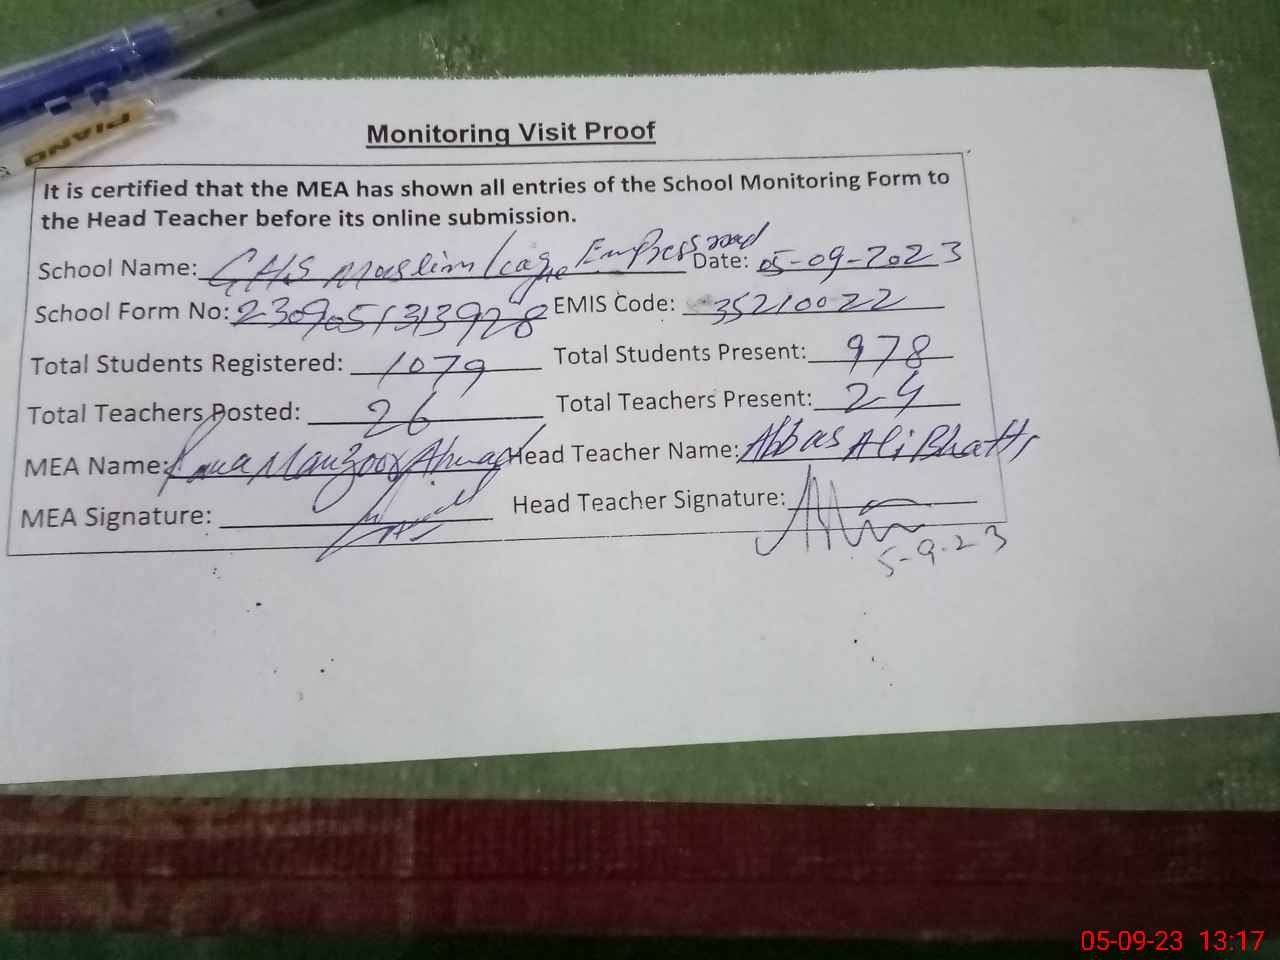 PIANO
Monitoring Visit Proof
It is certified that the MEA has shown all entries of the School Monitoring Form to
the Head Teacher before its online submission.
School Name: GHS Muslim league Empress road Date: 05-09-2023
School Form No: 2309051313928 EMIS Code: 35210022
Total Students Registered: 1079 Total Students Present: 978
Total Teachers Posted: 26 Total Teachers Present: 24
MEA Name: Rana Manzoor Ahmad Head Teacher Name: Abbas Ali Bhatti
MEA Signature: Head Teacher Signature:
5-9-23
05-09-23 13:17